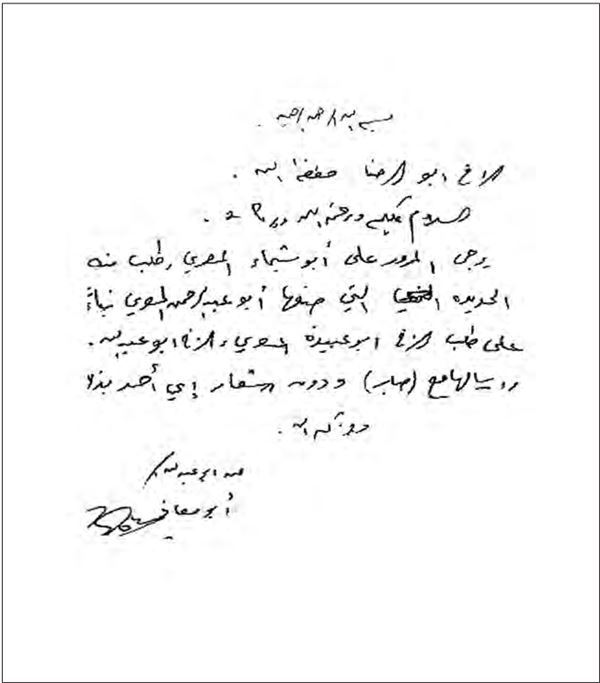 بسم الله الرحمن الرحيم .
الاخ ابو الرضا حفظه الله .
السلام عليكم ورحمة الله وبركاته .
يرجى المرور على أبو شيماء المصري وطلب منه
الحديده التي صنعها أبو عبد الرحمن المصري بناءً
على طلب الاخ ابو عبيدة المصري والاخ ابو عبد الله .
وارسالها مع (صابر) ودون اشعار إي أحد بذلك
وبارك الله .
عند ابو عبد الله
أبو معاذ